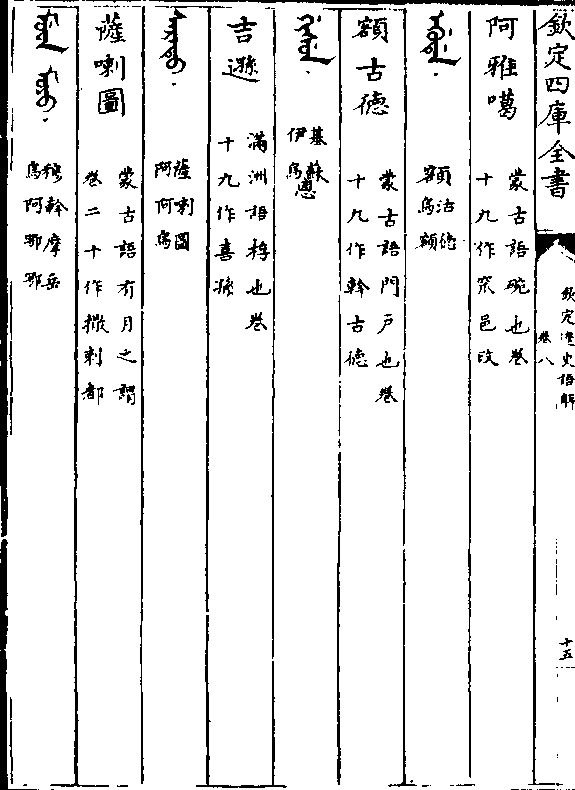 欽定四庫全書
欽定遼史語解
卷八
十五
阿雅噶
蒙古語碗也卷
十九作窊邑改
額沽德
烏額
額古德
蒙古語門戶也卷
十九作斡古德
基蘇
伊烏
吉遜
滿洲語桴也卷
十九作喜孫
薩喇圖
阿阿烏
薩喇圖
蒙古語有月之謂
卷二十作撒剌都
穆幹摩岳
烏阿鄂鄂